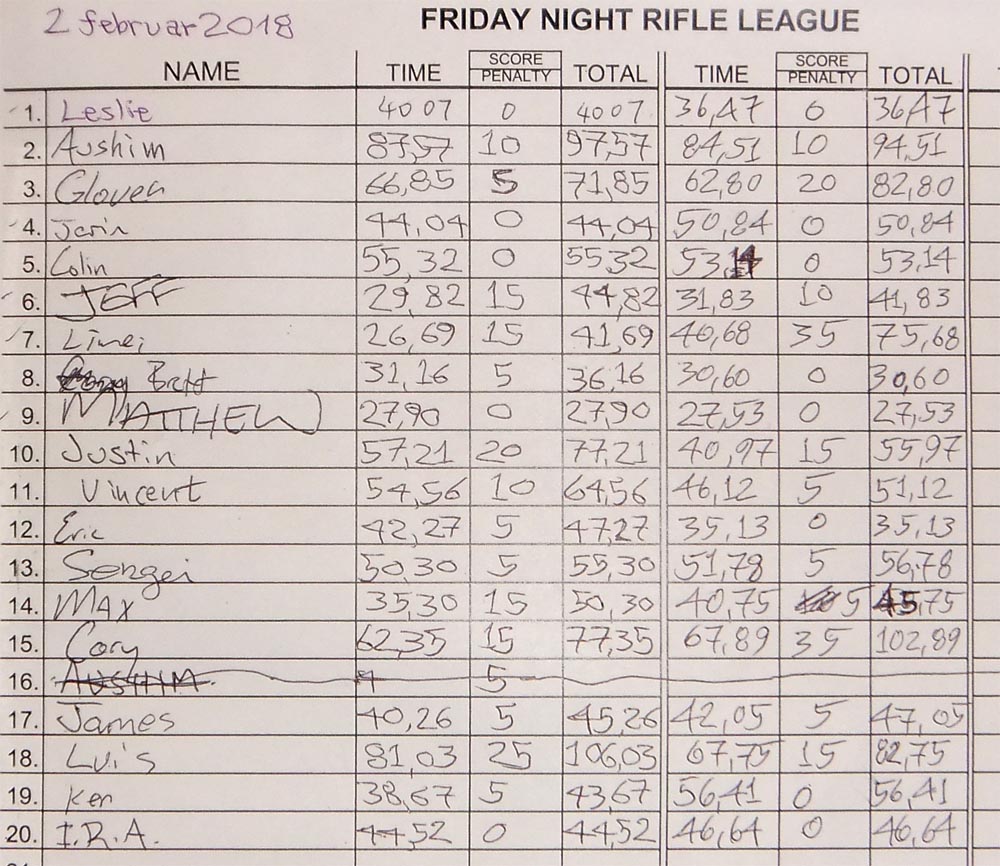 2 februar 2018 FRIDAY NIGHT RIFLE LEAGUE
NAME TIME SCORE PENALTY TOTAL TIME SCORE PENALTY TOTAL
1. Leslie 40 07 0 40 07 36,47 0 36,47
2. Aushim 87,57 10 97,57 84,51 10 94,51
3. Glover 66,85 5 71,85 62,80 20 82,80
4. Jerin 44,04 0 44,04 50,84 0 50,84
5. Colin 55,32 0 55,32 53,14 0 53,14
6. JEFF 29,82 15 44,82 31,83 10 41,83
7. Limei 26,69 15 41,69 40,68 35 75,68
8. Brett 31,16 5 36,16 30,60 0 30,60
9. MATTHEW 27,90 0 27,90 27,53 0 27,53
10. Justin 57,21 20 77,21 40,97 15 55,97
11. Vincent 54,56 10 64,56 46,12 5 51,12
12. Eric 42,27 5 47,27 35,13 0 35,13
13. Sergei 50,30 5 55,30 51,78 5 56,78
14. MAX 35,30 15 50,30 40,75 5 45,75
15. Cory 62,35 15 77,35 67,89 35 102,89
16. AUSHIM 5
17. James 40,26 5 45,26 42,05 5 47,05
18. Luis 81,03 25 106,03 67,75 15 82,75
19. Ken 38,67 5 43,67 56,41 0 56,41
20. I.R.A. 44,52 0 44,52 46,64 0 46,64